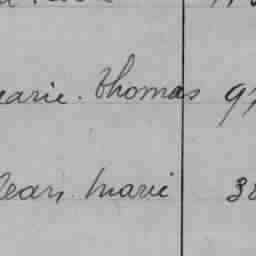 arie. Thomas 97
Jean Marie 38